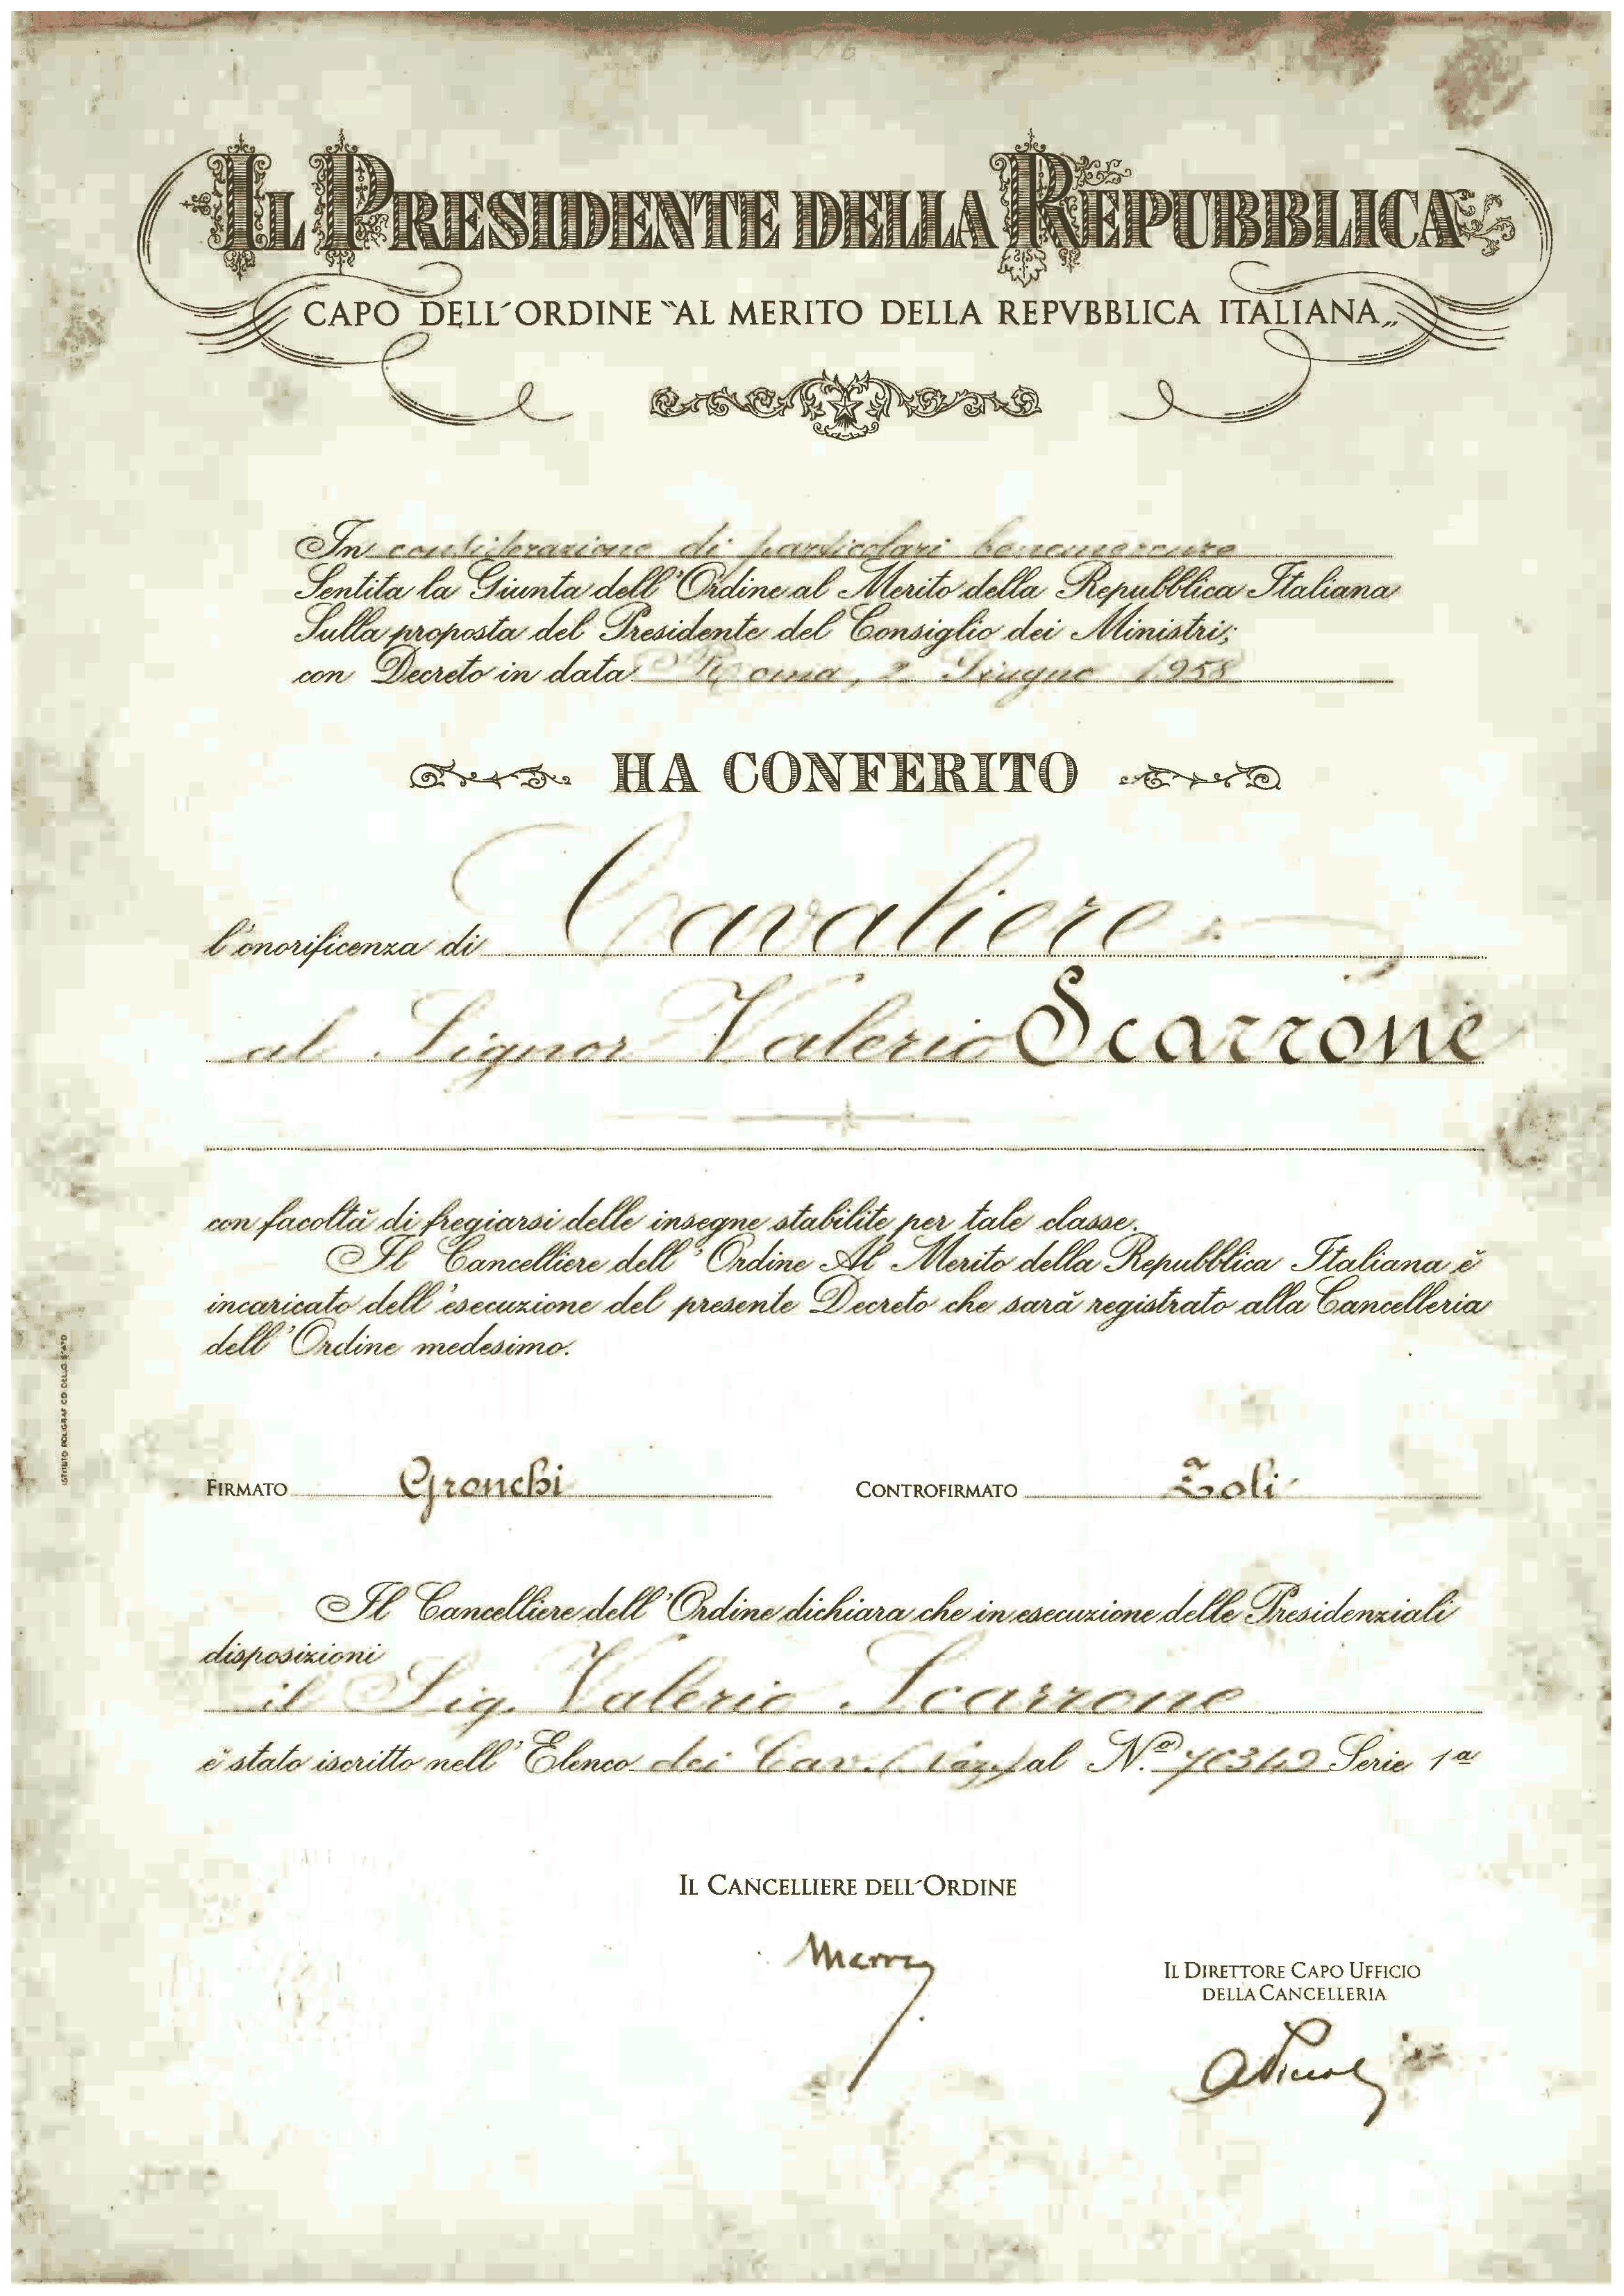 IL PRESIDENTE DELLA REPUBBLICA
CAPO DELL'ORDINE "AL MERITO DELLA REPVBBLICA ITALIANA„
In considerazione di particolari benemerenze
Sentita la Giunta dell'Ordine al Merito della Repubblica Italiana
Sulla proposta del Presidente del Consiglio dei Ministri;
con Decreto in data Roma, 2 Giugno 1958
HA CONFERITO
l'onorificenza di Cavaliere
al Signor Valerio Scarrone
con facoltà di fregiarsi delle insegne stabilite per tale classe.
Il Cancelliere dell'Ordine Al Merito della Repubblica Italiana è
incaricato dell'esecuzione del presente Decreto che sarà registrato alla Cancelleria
dell'Ordine medesimo.
FIRMATO Gronchi CONTROFIRMATO Zoli
Il Cancelliere dell'Ordine dichiara che in esecuzione delle Presidenziali
disposizioni
il Sig. Valerio Scarrone
è stato iscritto nell'Elenco dei Cav. al N.º Serie 1ª
IL CANCELLIERE DELL'ORDINE
IL DIRETTORE CAPO UFFICIO
DELLA CANCELLERIA
ISTITUTO POLIGRAFICO DELLO STATO